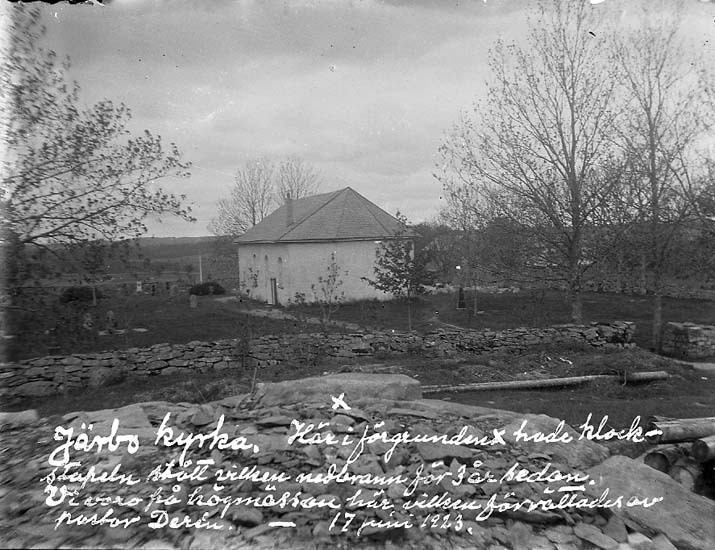 x
Järbo kyrka. Här i förgrunden x hade klock-
stapeln stått vilken nedbrann för 3 år sedan.
Vi voro på högmässan här, vilken förvaltades av
pastor Derén. — 17 juni 1923.